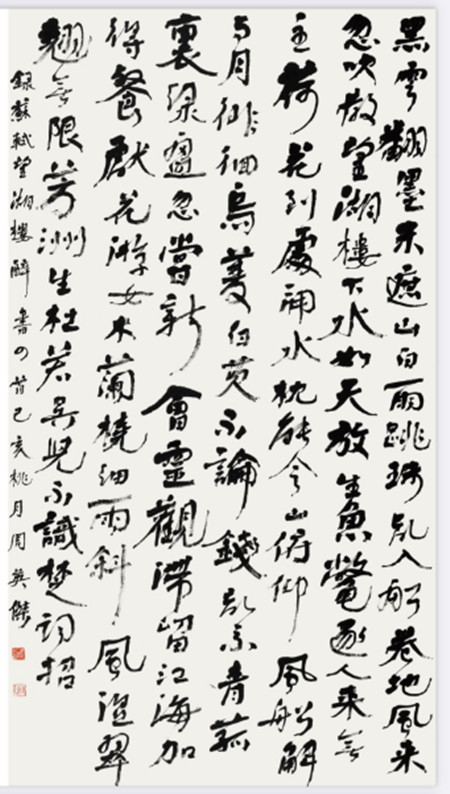 黑雲翻墨未遮山白雨跳珠亂入船卷地風来
忽吹散望湖樓下水如天放生魚鱉逐人来無
主荷花到處開水枕能令山俯仰風船解
与月徘徊烏菱白芡不論錢亂系青菰
裹綠盤忽嘗新會靈觀滯留江海加
得餐獻花游女木蘭橈細雨斜風濕翠
翹無限芳洲生杜若吳兒不識楚詞招
録蘇軾望湖樓醉書四首己亥桃月周英傑